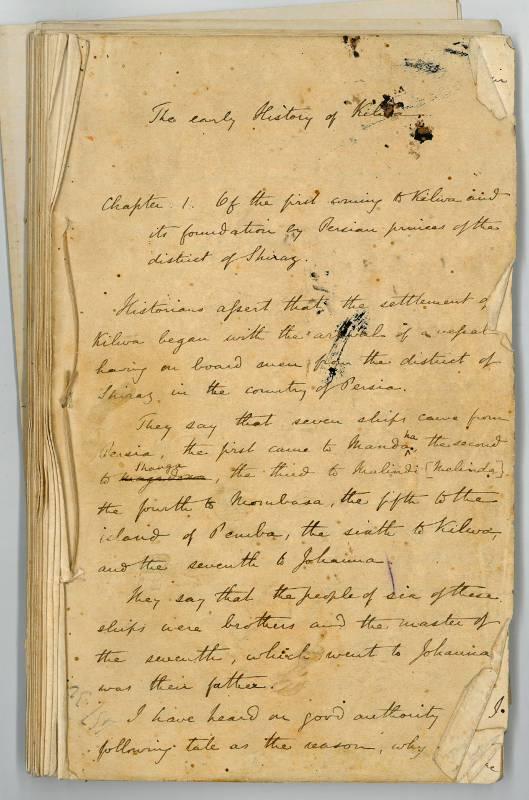 The early History of Kilwa.
Chapter 1. Of the first coming to Kilwa and
its foundation by Persian princes of the
district of Shiraz.
Historians assert that the settlement of
Kilwa began with the arrival of a vessel
having on board men from the district of
Shiraz in the country of Persia.
They say that seven ships came from
Persia, the first came to Mandakha, the second
to Shaugu, the third to Malindi [Melinda]
the fourth to Mombasa, the fifth to the
island of Pemba, the sixth to Kilwa,
and the seventh to Johanna.
They say that the people of six of these
ships were brothers and the master of
the seventh, which went to Johanna
was their father.
I have heard on good authority
following tale as the reason, why